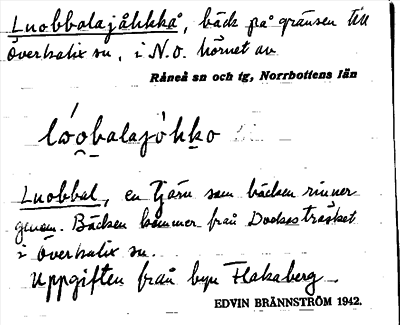 Luobbalajåhkkå, bäck på gränsen till
Överkalix sn, i N.O. hörnet av
Råneå sn och tg, Norrbottens län
lóobalajòhko
Luobbal, en tjärn som bäcken rinner
genom. Bäcken kommer från träsket
i Överkalix sn.
Uppgiften från byn Flakaberg
EDVIN BRÄNNSTRÖM 1942.